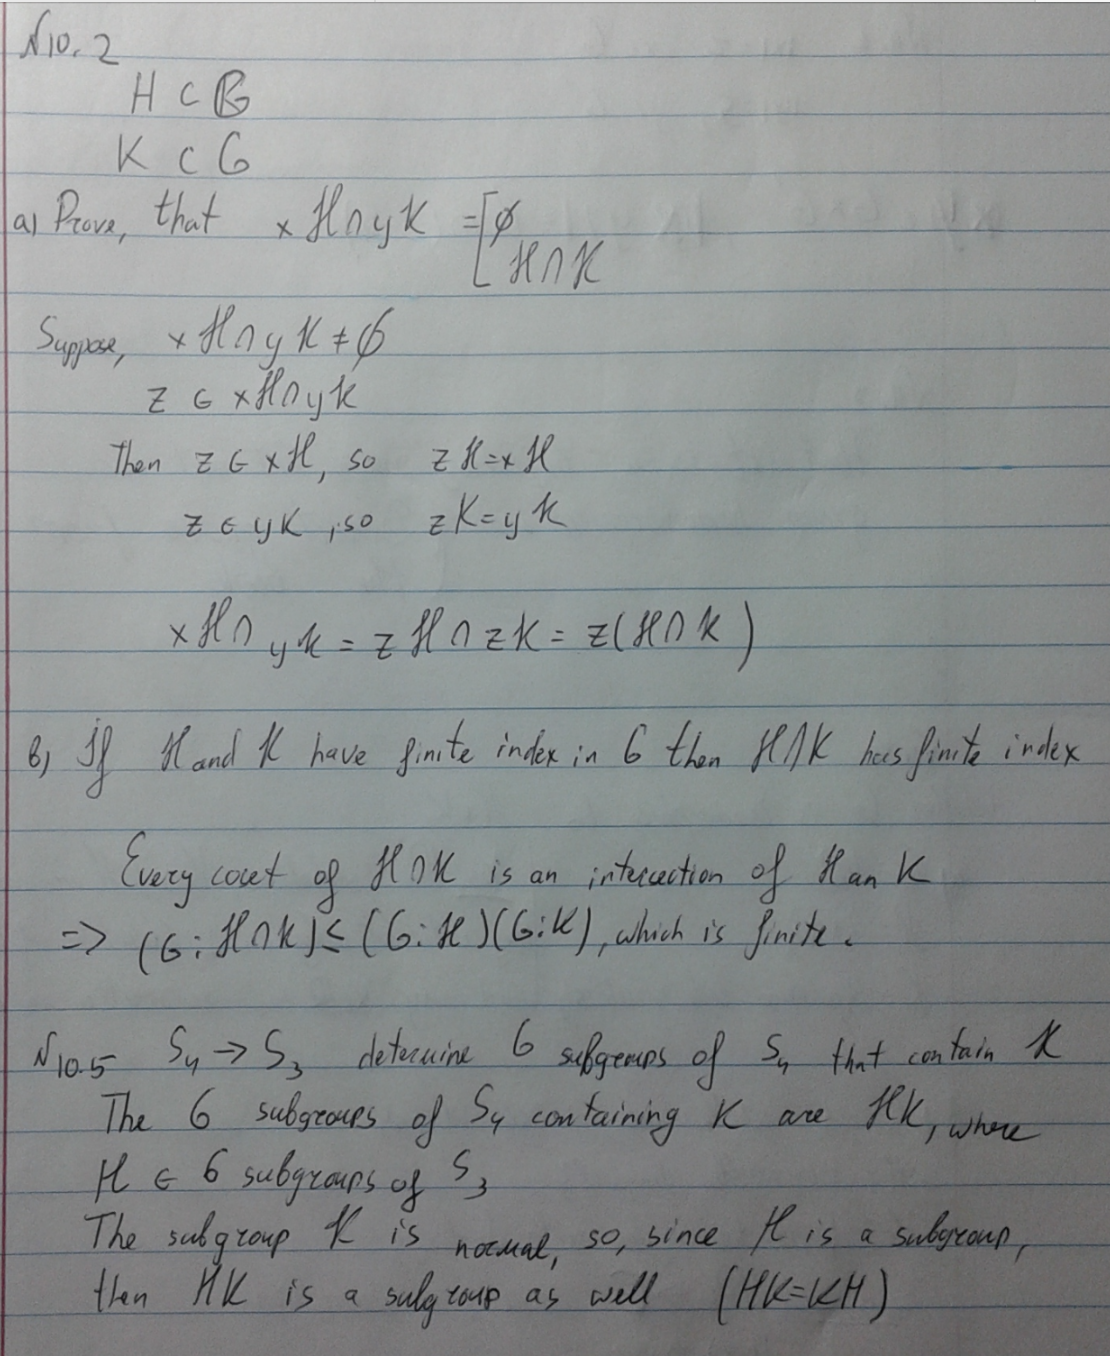 №10.2
H ⊂ G
K ⊂ G
a) Prove, that xH∩yK = [ ∅
H∩K
Suppose, xH∩yK ≠ ∅
z ∈ xH∩yK
Then z ∈ xH, so zH=xH
z ∈ yK, so zK=yK
xH∩yK = zH∩zK = z(H∩K)
b) If H and K have finite index in G then H∩K has finite index
Every coset of H∩K is an intersection of H an K
=> (G:H∩K) ≤ (G:H)(G:K), which is finite.
№10.5 S₄ → S₃ determine 6 subgroups of S₄ that contain K
The 6 subgroups of S₄ containing K are HK, where
H ∈ 6 subgroups of S₃
The subgroup K is normal, so, since H is a subgroup,
then HK is a subgroup as well (HK=KH)